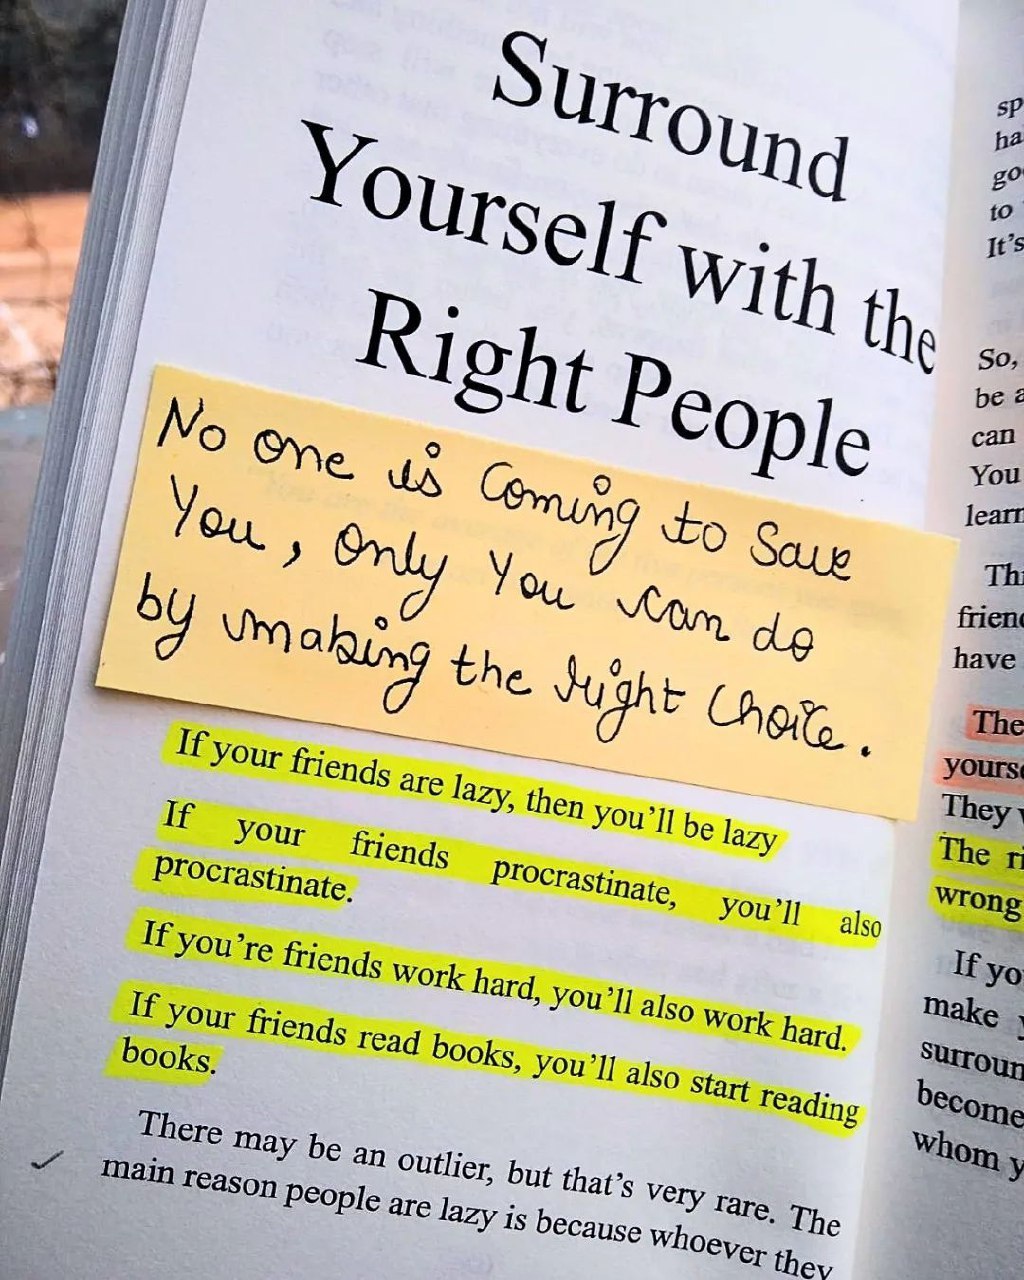 Surround
Yourself with the
Right People
No one is Coming to Save
You, Only You can do
by making the right Choice.
If your friends are lazy, then you'll be lazy
If your friends procrastinate, you'll also
procrastinate.
If you're friends work hard, you'll also work hard.
If your friends read books, you'll also start reading
books.
There may be an outlier, but that's very rare. The
main reason people are lazy is because whoever they
to
It's
So,
be a
can
You
have
The
They
The
wrong
If
make
whom